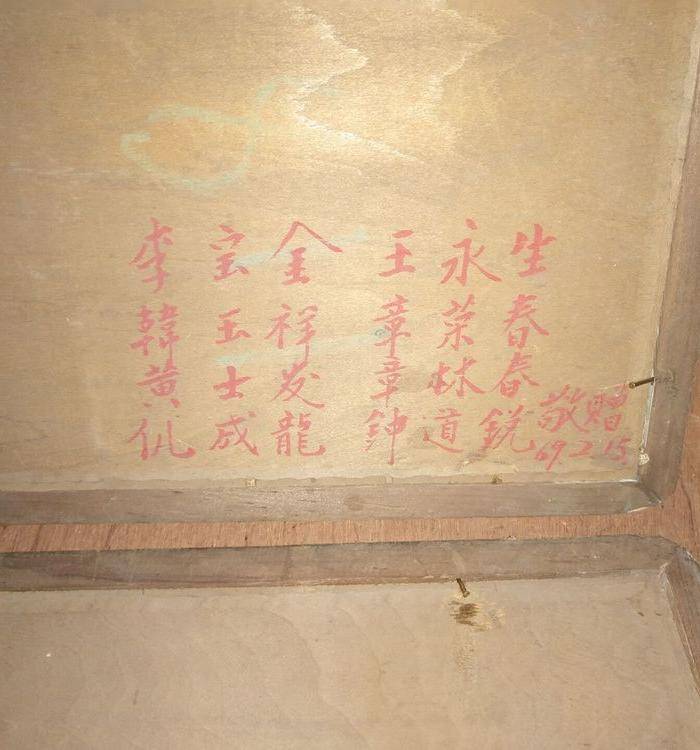 李宝金 王永生
韓玉祥 章荣春
黄士发 章林春
仉成龍 鈡道銳
敬贈
69.2.15.